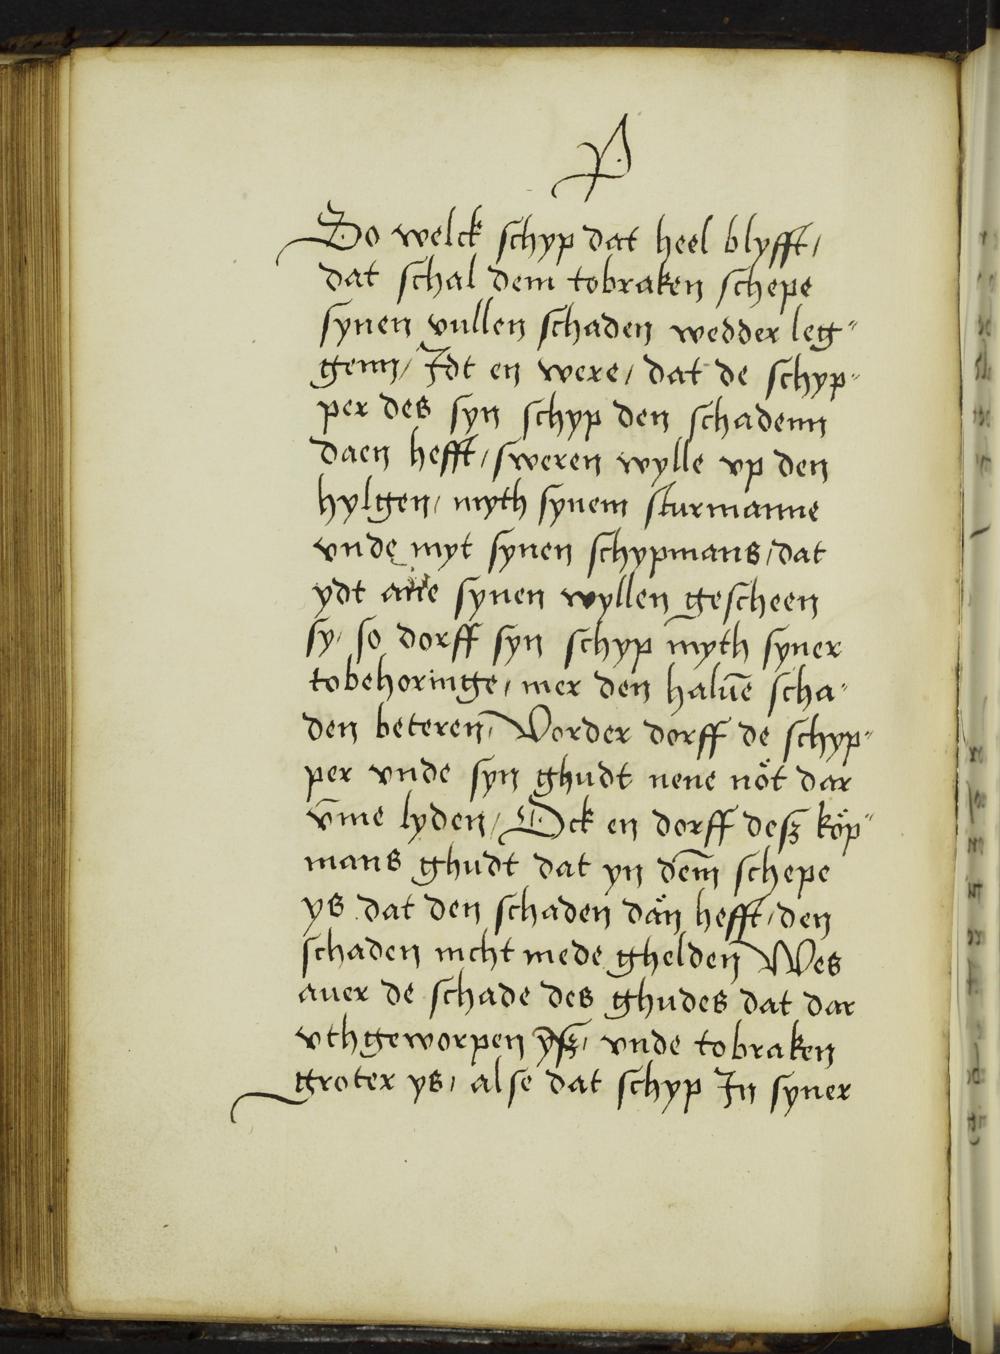 P
So welck schyp dat heel blyfft/
dat schal dem tobraken schepe
synen vullen schaden wedder leg"
genn/ Jdt en were/ dat de schyp"
per des syn schyp den schadenn
daen hefft/ sweren wylle vp den
hylgen/ myth synem sturmanne
vnde myt synen schypmans/ dat
ydt ane synen wyllen gescheen
sy/ so dorff syn schyp myth syner
tobehoringe/ mer den haluē scha"
den beteren/ Vorder dorff de schyp"
per vnde syn ghudt nene nöt dar
vm̄e lyden/ Ock en dorff desz köp"
mans ghudt dat yn dem̄ schepe
ys dat den schaden dän hefft/ den
schaden nicht mede ghelden Wes
auer de schade des ghudes dat dar
vthgeworpen ysz/ vnde tobraken
groter ys/ alse dat schyp Jn syner